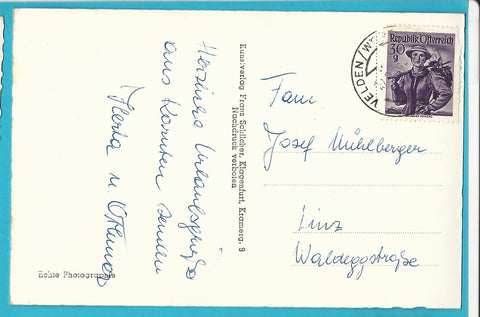 Herzliche Urlaubsgrüße
aus Kärnten senden
Herta u. Ottmar
Echte Photographie
Kunstverlag Franz Schilcher, Klagenfurt, Kramerg. 9
Nachdruck verboten
VELDEN/W
Republik Österreich
30
g
Fam.
Josef Mühlberger
Linz
Waldeggstraße